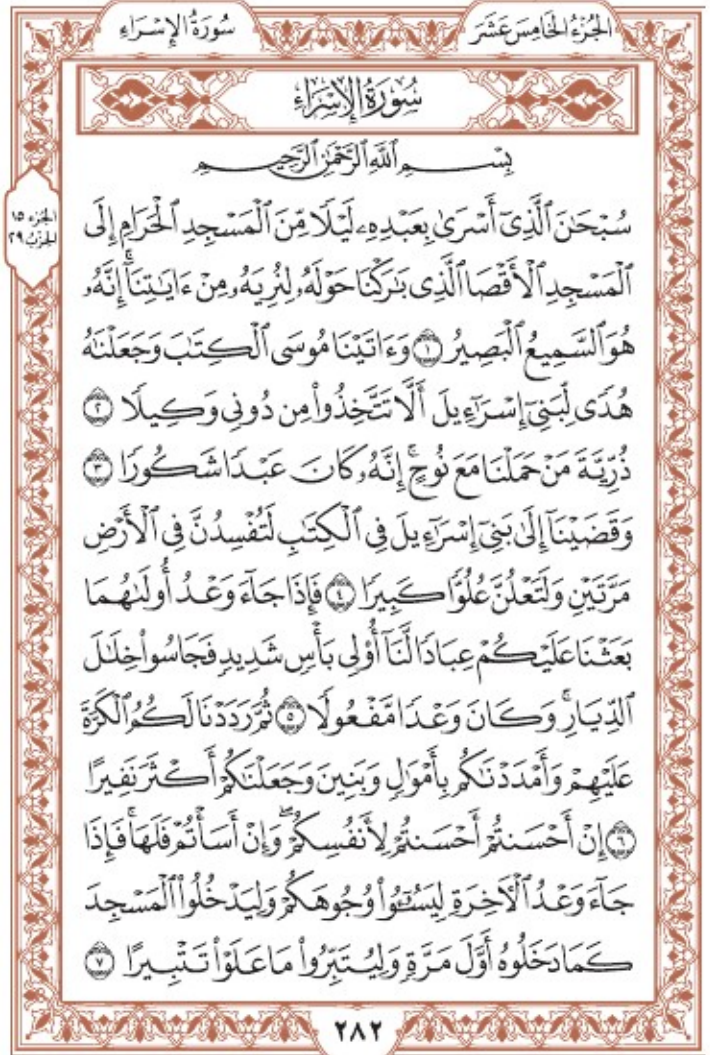 الجُزْءُ الخَامِسَ عَشَرَ
سُورَةُ الإِسْرَاءِ
سُورَةُ الإِسْرَاءِ
بِسْمِ ٱللَّهِ ٱلرَّحْمَٰنِ ٱلرَّحِيمِ
الجزء ١٥
الحزب ٢٩
سُبْحَٰنَ ٱلَّذِىٓ أَسْرَىٰ بِعَبْدِهِۦ لَيْلًا مِّنَ ٱلْمَسْجِدِ ٱلْحَرَامِ إِلَى
ٱلْمَسْجِدِ ٱلْأَقْصَا ٱلَّذِى بَٰرَكْنَا حَوْلَهُۥ لِنُرِيَهُۥ مِنْ ءَايَٰتِنَآ ۚ إِنَّهُۥ
هُوَ ٱلسَّمِيعُ ٱلْبَصِيرُ ١ وَءَاتَيْنَا مُوسَى ٱلْكِتَٰبَ وَجَعَلْنَٰهُ
هُدًى لِّبَنِىٓ إِسْرَٰٓءِيلَ أَلَّا تَتَّخِذُوا۟ مِن دُونِى وَكِيلًا ٢
ذُرِّيَّةَ مَنْ حَمَلْنَا مَعَ نُوحٍ ۚ إِنَّهُۥ كَانَ عَبْدًا شَكُورًا ٣
وَقَضَيْنَآ إِلَىٰ بَنِىٓ إِسْرَٰٓءِيلَ فِى ٱلْكِتَٰبِ لَتُفْسِدُنَّ فِى ٱلْأَرْضِ
مَرَّتَيْنِ وَلَتَعْلُنَّ عُلُوًّا كَبِيرًا ٤ فَإِذَا جَآءَ وَعْدُ أُولَىٰهُمَا
بَعَثْنَا عَلَيْكُمْ عِبَادًا لَّنَآ أُو۟لِى بَأْسٍ شَدِيدٍ فَجَاسُوا۟ خِلَٰلَ
ٱلدِّيَارِ ۚ وَكَانَ وَعْدًا مَّفْعُولًا ٥ ثُمَّ رَدَدْنَا لَكُمُ ٱلْكَرَّةَ
عَلَيْهِمْ وَأَمْدَدْنَٰكُم بِأَمْوَٰلٍ وَبَنِينَ وَجَعَلْنَٰكُمْ أَكْثَرَ نَفِيرًا
٦ إِنْ أَحْسَنتُمْ أَحْسَنتُمْ لِأَنفُسِكُمْ ۖ وَإِنْ أَسَأْتُمْ فَلَهَا ۚ فَإِذَا
جَآءَ وَعْدُ ٱلْءَاخِرَةِ لِيَسُۥٓـُٔوا۟ وُجُوهَكُمْ وَلِيَدْخُلُوا۟ ٱلْمَسْجِدَ
كَمَا دَخَلُوهُ أَوَّلَ مَرَّةٍ وَلِيُتَبِّرُوا۟ مَا عَلَوْا۟ تَتْبِيرًا ٧
٢٨٢